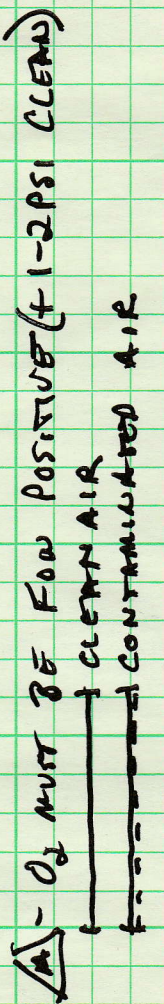 A - O2 MUST BE FOR POSITIVE (+ 1-2 PSI CLEAN)
CLEAN AIR
CONTAMINATED AIR